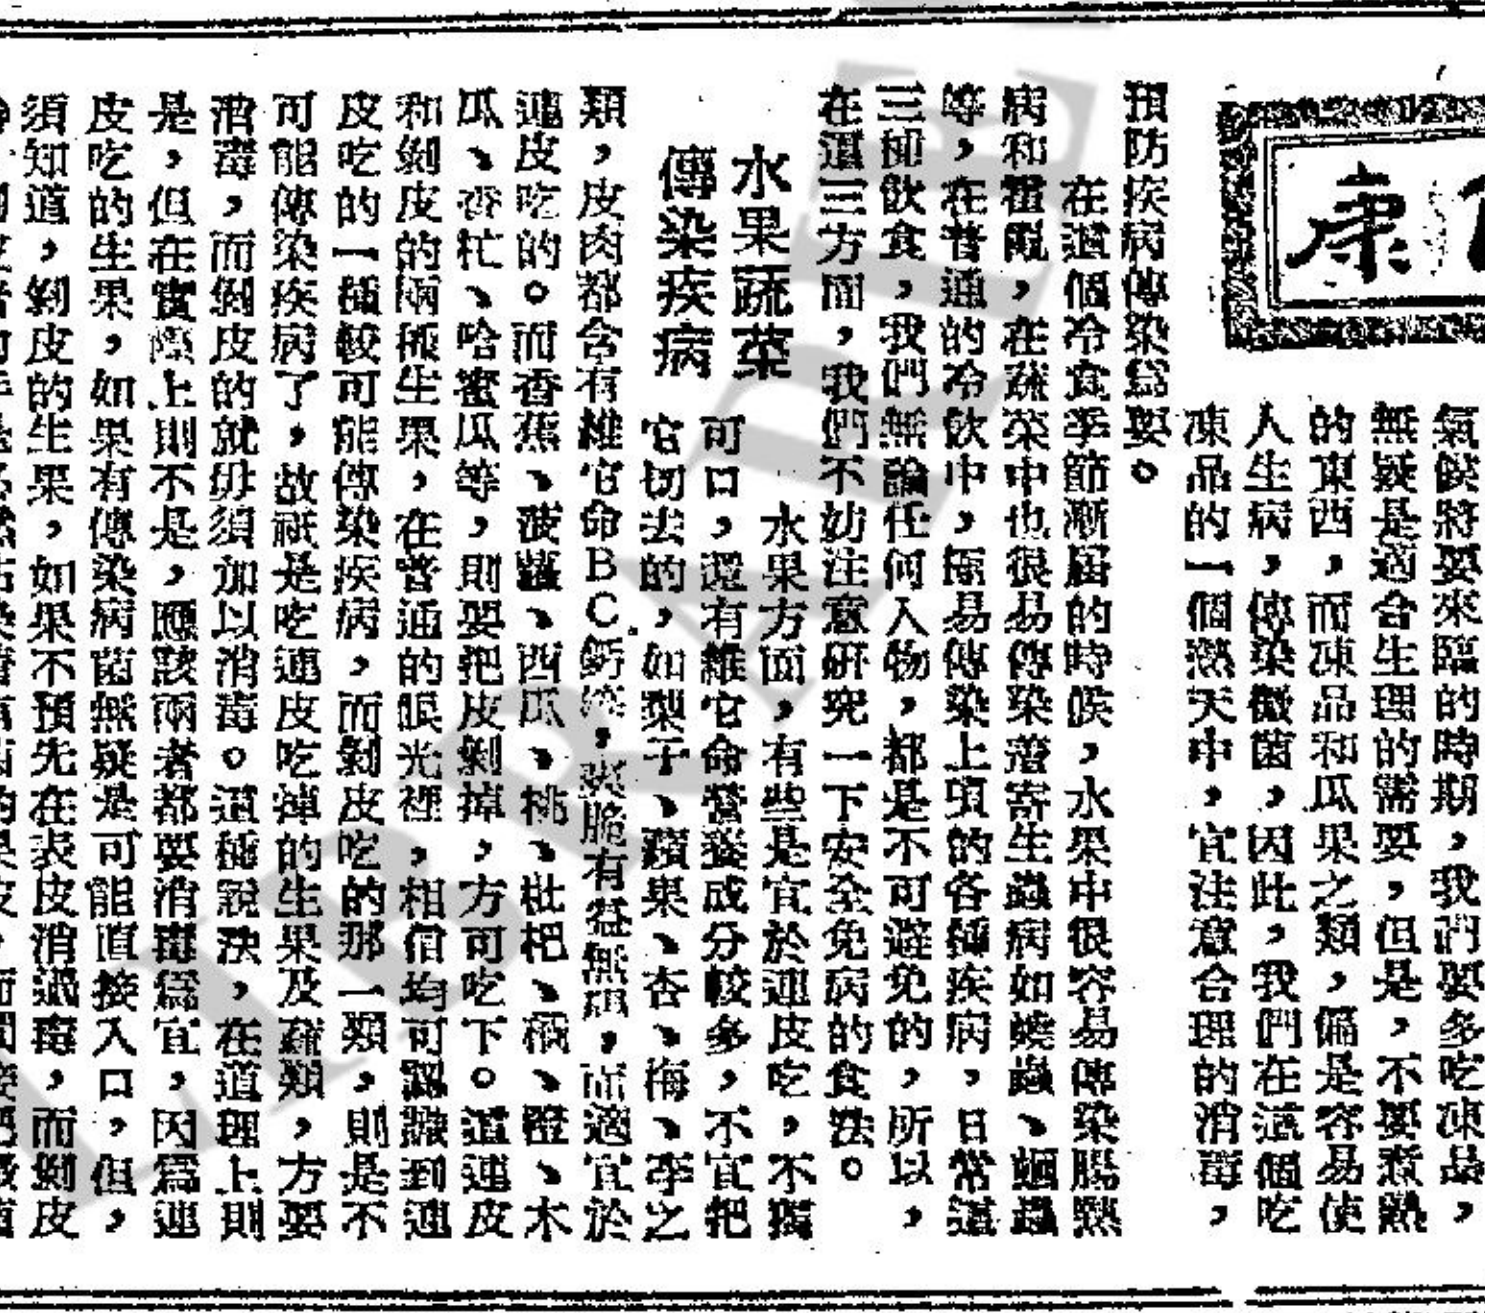 康
氣候將要來臨的時期，我們要多吃凍品，
無疑是適合生理的需要，但是，不要煮熟
的東西，而凍品和瓜果之類，偏是容易使
人生病，傳染微菌，因此，我們在這個吃
凍品的一個熱天中，宜注意合理的消毒，
預防疾病傳染爲要。
在這個冷食季節漸屆的時候，水果中很容易傳染腸熱
病和霍亂，在蔬菜中也很易傳染着寄生蟲病如蟯蟲、蛔蟲
等，在普通的冷飲中，極易傳染上項的各種疾病，日常這
三種飲食，我們無論任何人物，都是不可避免的，所以，
在這三方面，我們不妨注意研究一下安全免病的食法。
水果蔬菜
傳染疾病
水果方面，有些是宜於連皮吃，不獨
可口，還有維它命營養成分較多，不宜把
它切去的，如梨子、蘋果、杏、梅、李之
類，皮肉都含有維它命BC鈣燐，爽脆有益無損，而適宜於
連皮吃的。而香蕉、菠蘿、西瓜、桃、枇杷、橙、木
瓜、香杧、哈蜜瓜等，則要把皮剝掉，方可吃下。這連皮
和剝皮的兩種生果，在普通的眼光裡，相信均可認識到連
皮吃的一種較可能傳染疾病，而剝皮吃的那一類，則是不
可能傳染疾病了，故祇是吃連皮吃掉的生果及蔬類，方要
消毒，而剝皮的就毋須加以消毒。這種說法，在道理上則
是，但在實際上則不是，應該兩者都要消毒爲宜，因爲連
皮吃的生果，如果有傳染病菌無疑是可能直接入口，但，
須知道，剝皮的生果，如果不預先在表皮消過毒，而剝皮